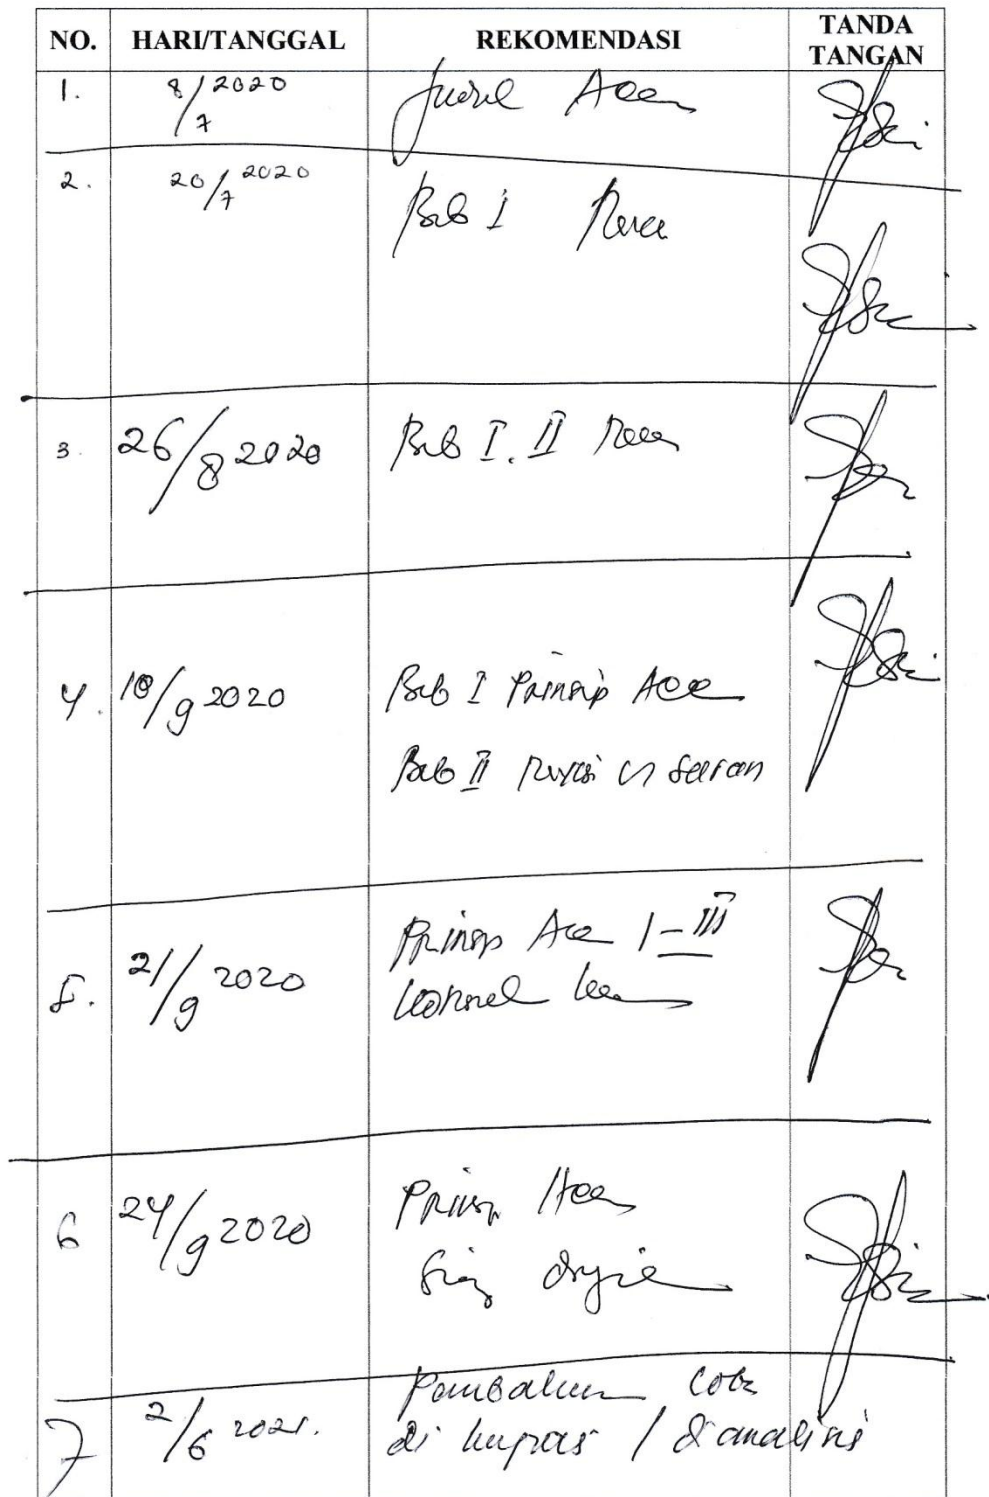 NO. HARI/TANGGAL REKOMENDASI TANDA TANGAN
1. 8/7 2020 Judul Acc
2. 20/7 2020 Bab I
3. 26/8 2020 Bab I. II
4. 18/9 2020 Bab I Prinsip Acc
Bab II Revisi saran
5. 21/9 2020 Prinsip Acc I-III
6 24/9 2020 Prinsip Acc
Siap
7 2/6 2021. Pembahasan coba
di kupas / dianalisis